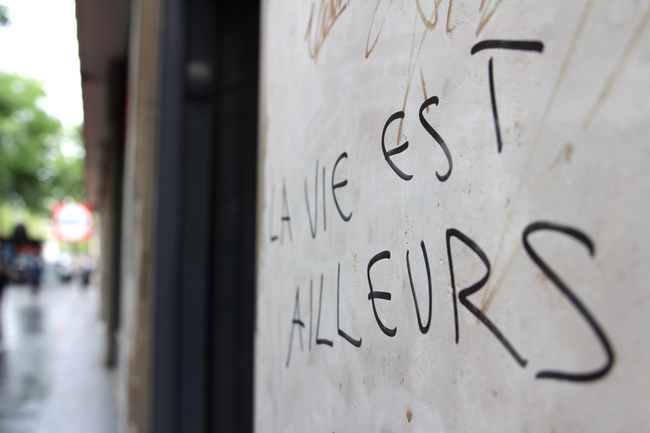 LA VIE EST
AILLEURS